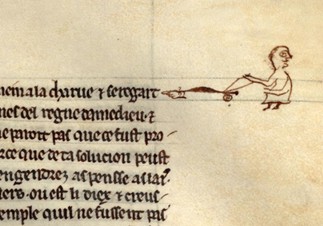 mem a la charue & se regart
nes del regne damedieu · &
ne pnott pas que ce fust pro-
rce que de ta solucion peust
engendrez as pensse a la
ters · ou est li diex & creus-
emple quil ne fussent pas